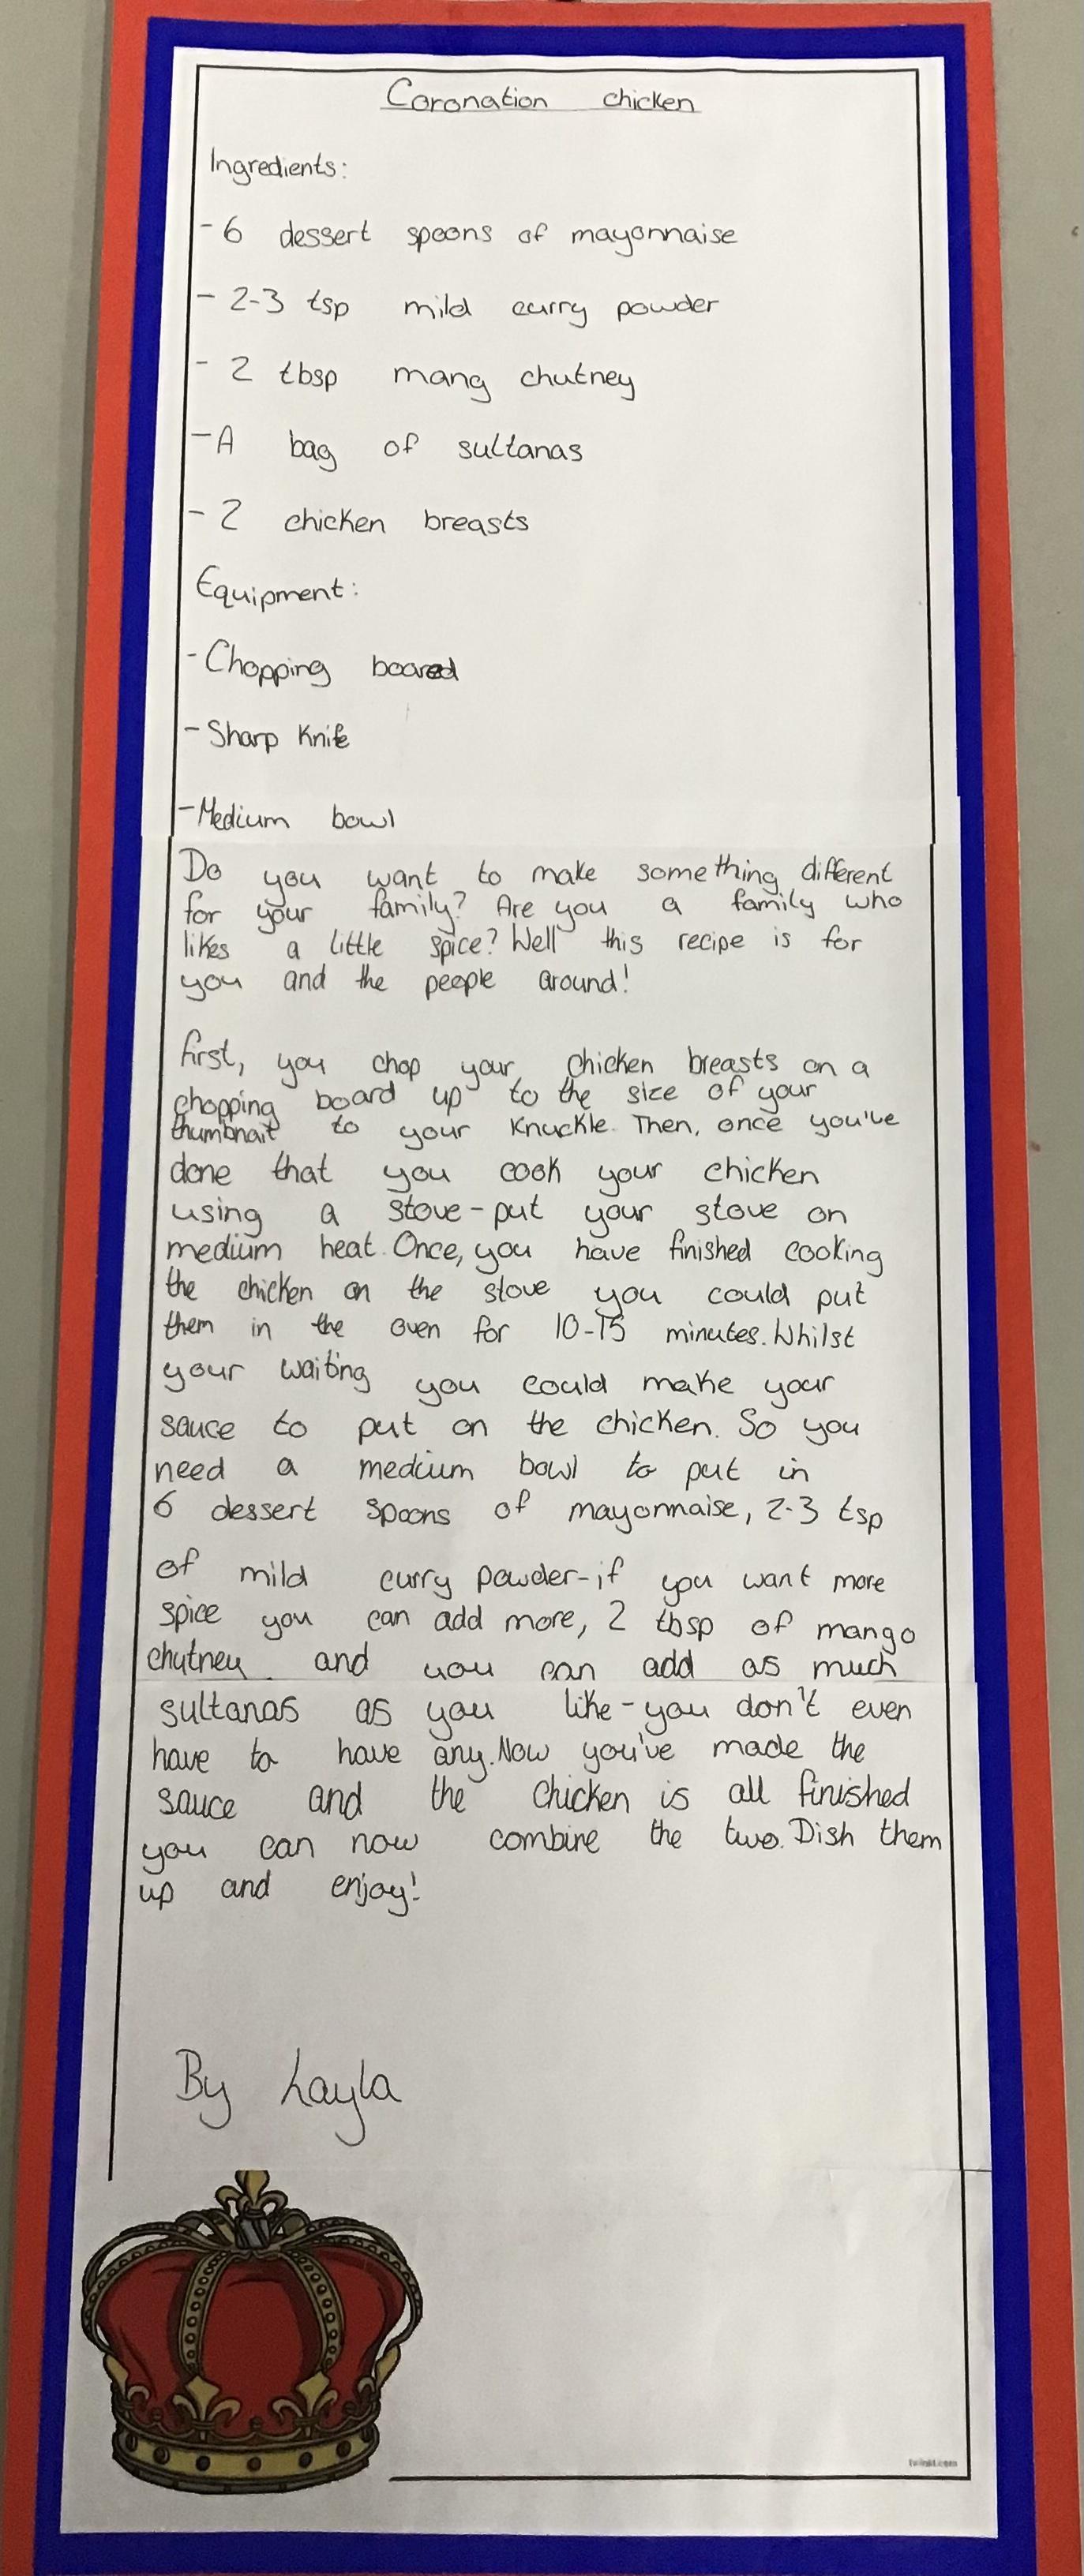 Coronation chicken
Ingredients:
- 6 dessert spoons of mayonnaise
- 2-3 tsp mild curry powder
- 2 tbsp mang chutney
- A bag of sultanas
- 2 chicken breasts
Equipment:
- Chopping board
- Sharp Knife
- Medium bowl
Do you want to make something different
for your family? Are you a family who
likes a little spice? Well this recipe is for
you and the people around!
first, you chop your chicken breasts on a
chopping board up to the size of your
thumbnail to your Knuckle. Then, once you've
done that you cook your chicken
using a stove - put your stove on
medium heat. Once, you have finished cooking
the chicken on the stove you could put
them in the oven for 10-15 minutes. Whilst
your waiting you could make your
sauce to put on the chicken. So you
need a medium bowl to put in
6 dessert spoons of mayonnaise, 2-3 tsp
of mild curry powder - if you want more
spice you can add more, 2 tbsp of mango
chutney and you can add as much
sultanas as you like - you don't even
have to have any. Now you've made the
sauce and the chicken is all finished
you can now combine the two. Dish them
up and enjoy!
By Layla
twinkl.com